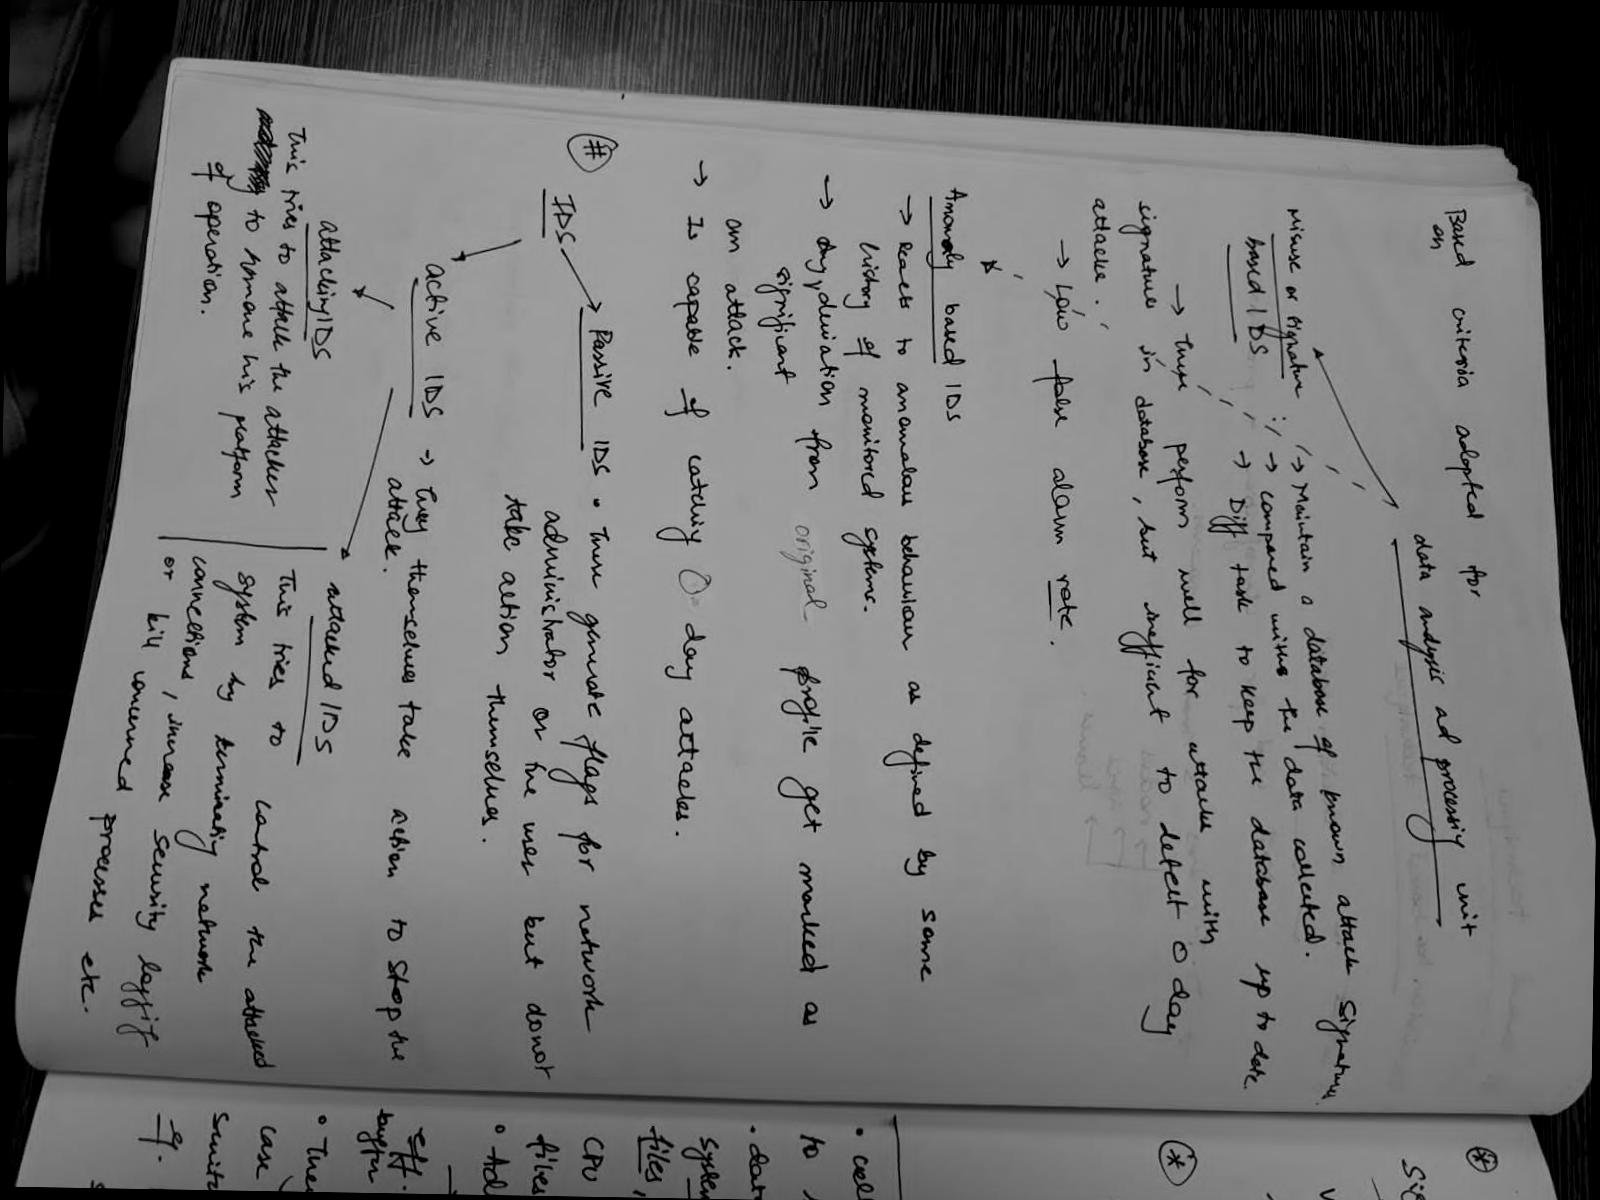 Based criteria adopted for
on
data analysis ad processing unit
Misuse or signature
based IDS
→ Maintain a database of known attack signature.
→ compared withs the data collected.
→ Diff task to keep the database up to date.
→ These perform well for attacks with
signatures in database, but inefficient to detect 0 day
attacks.
→ Low false alarm rate.
Anomaly based IDS
→ Reacts to anomalous behaviour as defined by some
history of monitored systems.
→ Any deviation from original profile get marked as
significant
an attack.
→ Is capable of catching 0 day attacks.
#
IDS
→ Passive IDS • These generate flags for network
administrator or the user but donot
take action themselves.
active IDS → They themselves take action to stop the
attack.
attacking IDS
This tries to attack the attacker
to remove his platform
of operation.
attacked IDS
This tries to control the attacked
system by terminating network
connections, increase security logging
or kill concerned processes etc.
*
*
to
system
files,
CPU
files
buffer
case
eg.